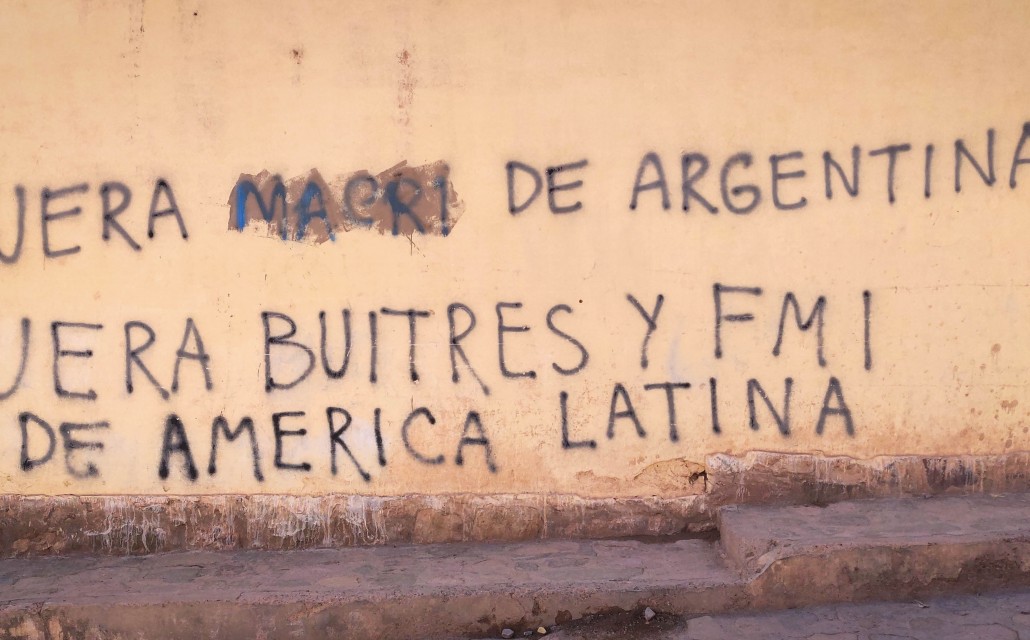 UERA MACRI DE ARGENTINA
UERA BUITRES Y FMI
DE AMERICA LATINA